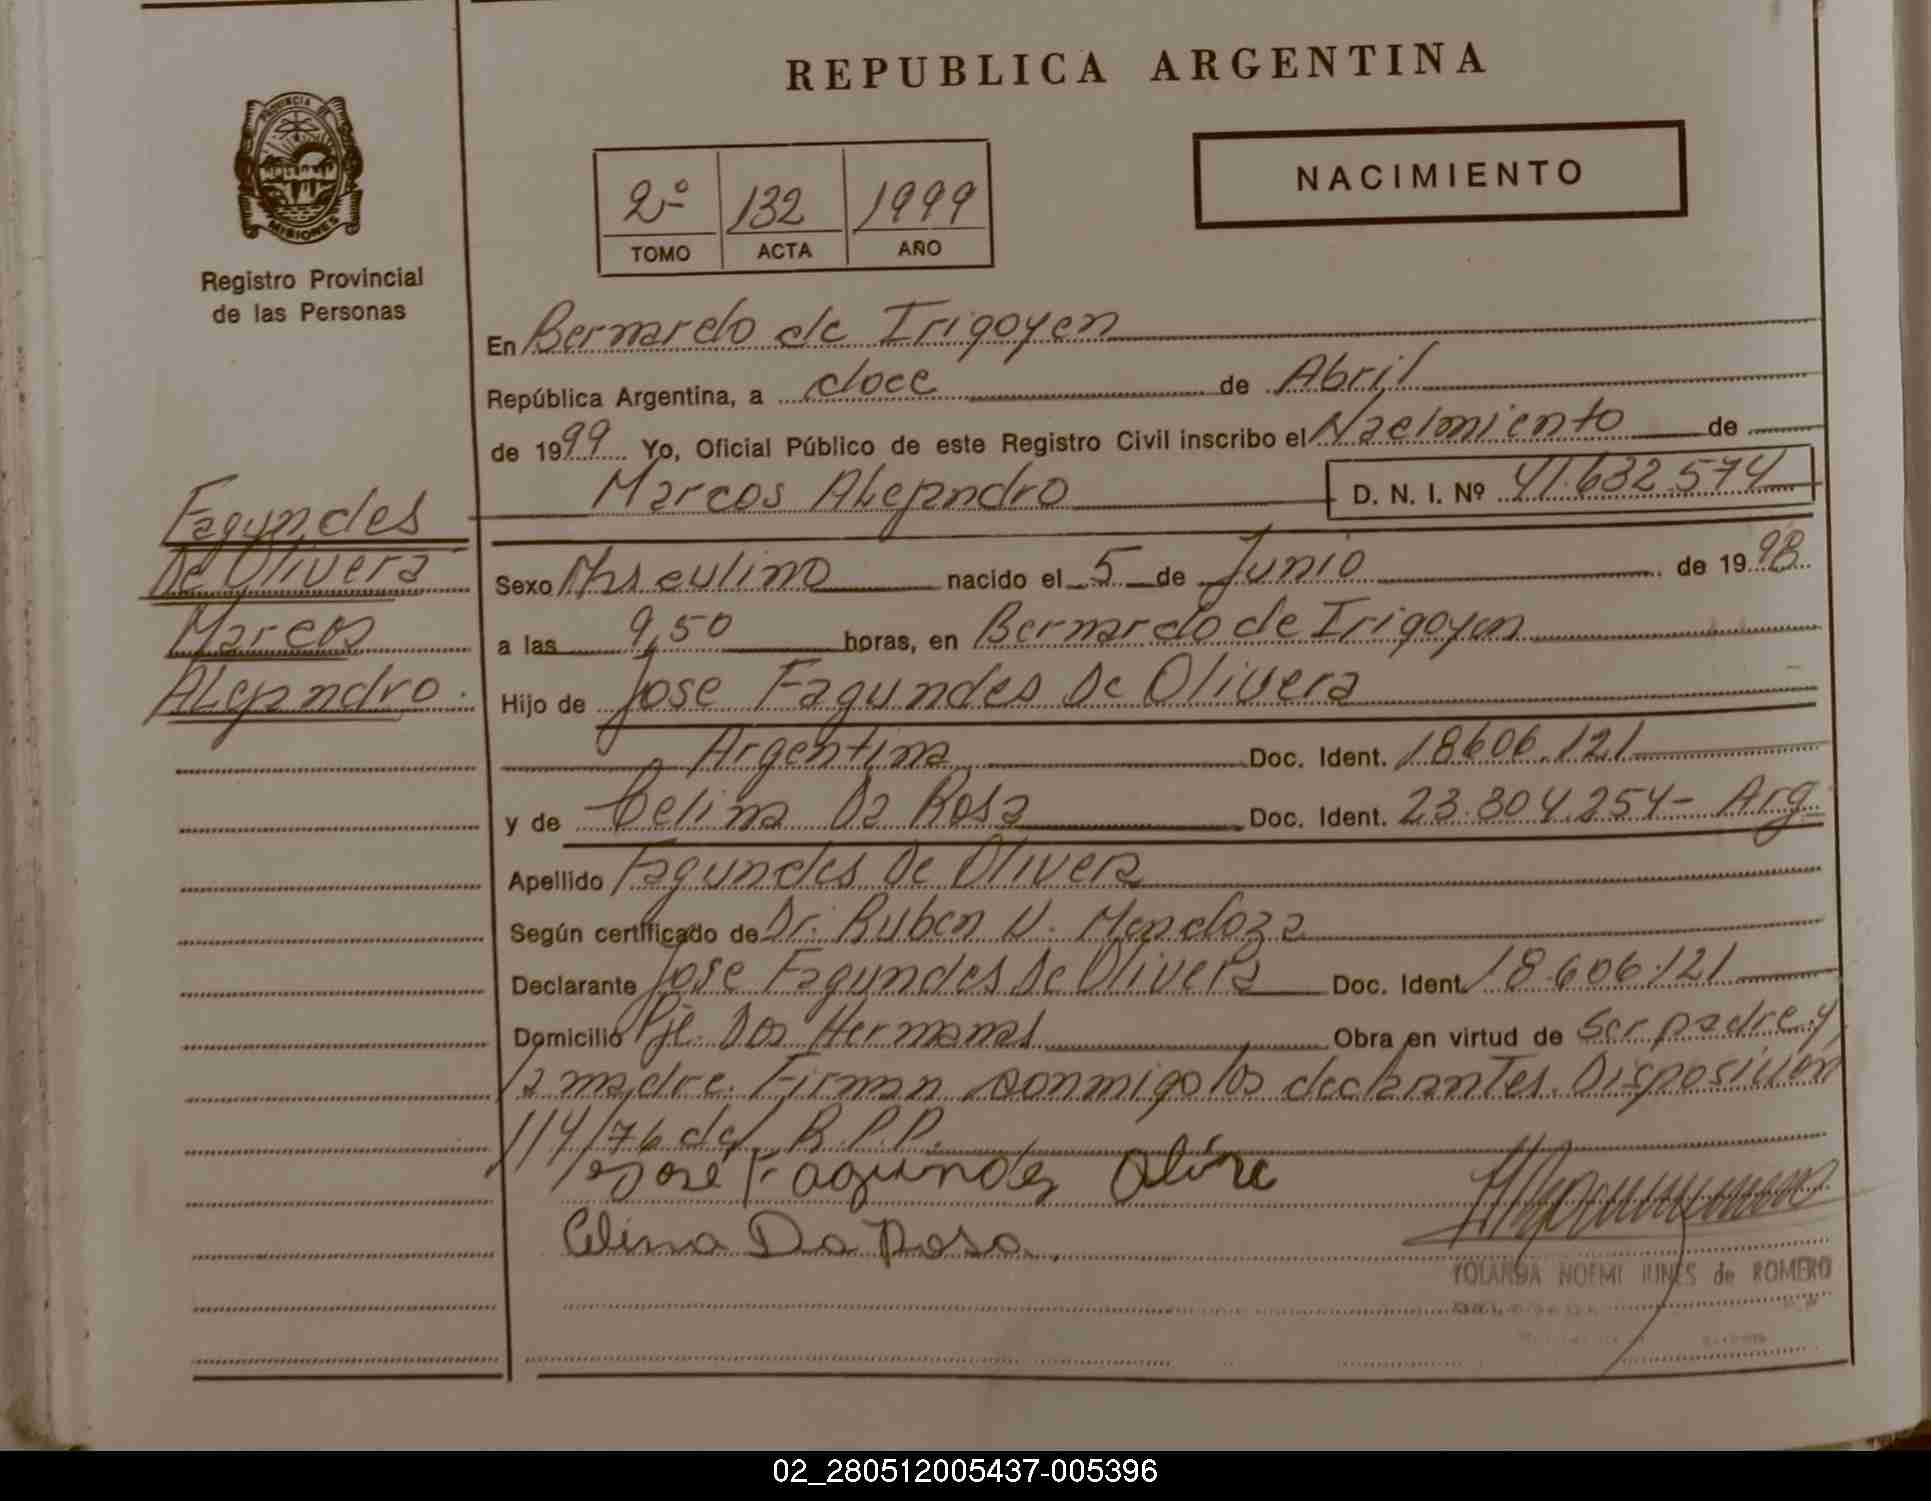 REPUBLICA ARGENTINA
PROVINCIA DE
MISIONES
Registro Provincial
de las Personas
2º 132 1999
TOMO ACTA AÑO
NACIMIENTO
En Bernardo de Irigoyen
República Argentina, a doce de Abril
de 1999 Yo, Oficial Público de este Registro Civil inscribo el Nacimiento de
Marcos Alejandro D. N. I. Nº 41.632.574
Fagundes
De Olivera
Marcos
Alejandro.
Sexo Masculino nacido el 5 de Junio de 1998
a las 9,50 horas, en Bernardo de Irigoyen
Hijo de Jose Fagundes De Olivera
Argentina Doc. Ident. 18.606.121
y de Celina Da Rosa Doc. Ident. 23.304.254- Arg.
Apellido Fagundes De Olivera
Según certificado de Dr. Ruben N. Mendoza
Declarante Jose Fagundes De Olivera Doc. Ident. 18.606.121
Domicilio Pje. Dos Hermanas Obra en virtud de ser padre y
la madre. Firman conmigo los declarantes. Disposición
114/76 del R.P.P.
Jose Fagundes
Celina Da Rosa
YOLANDA NOEMI IUNES de ROMERO
02_280512005437-005396